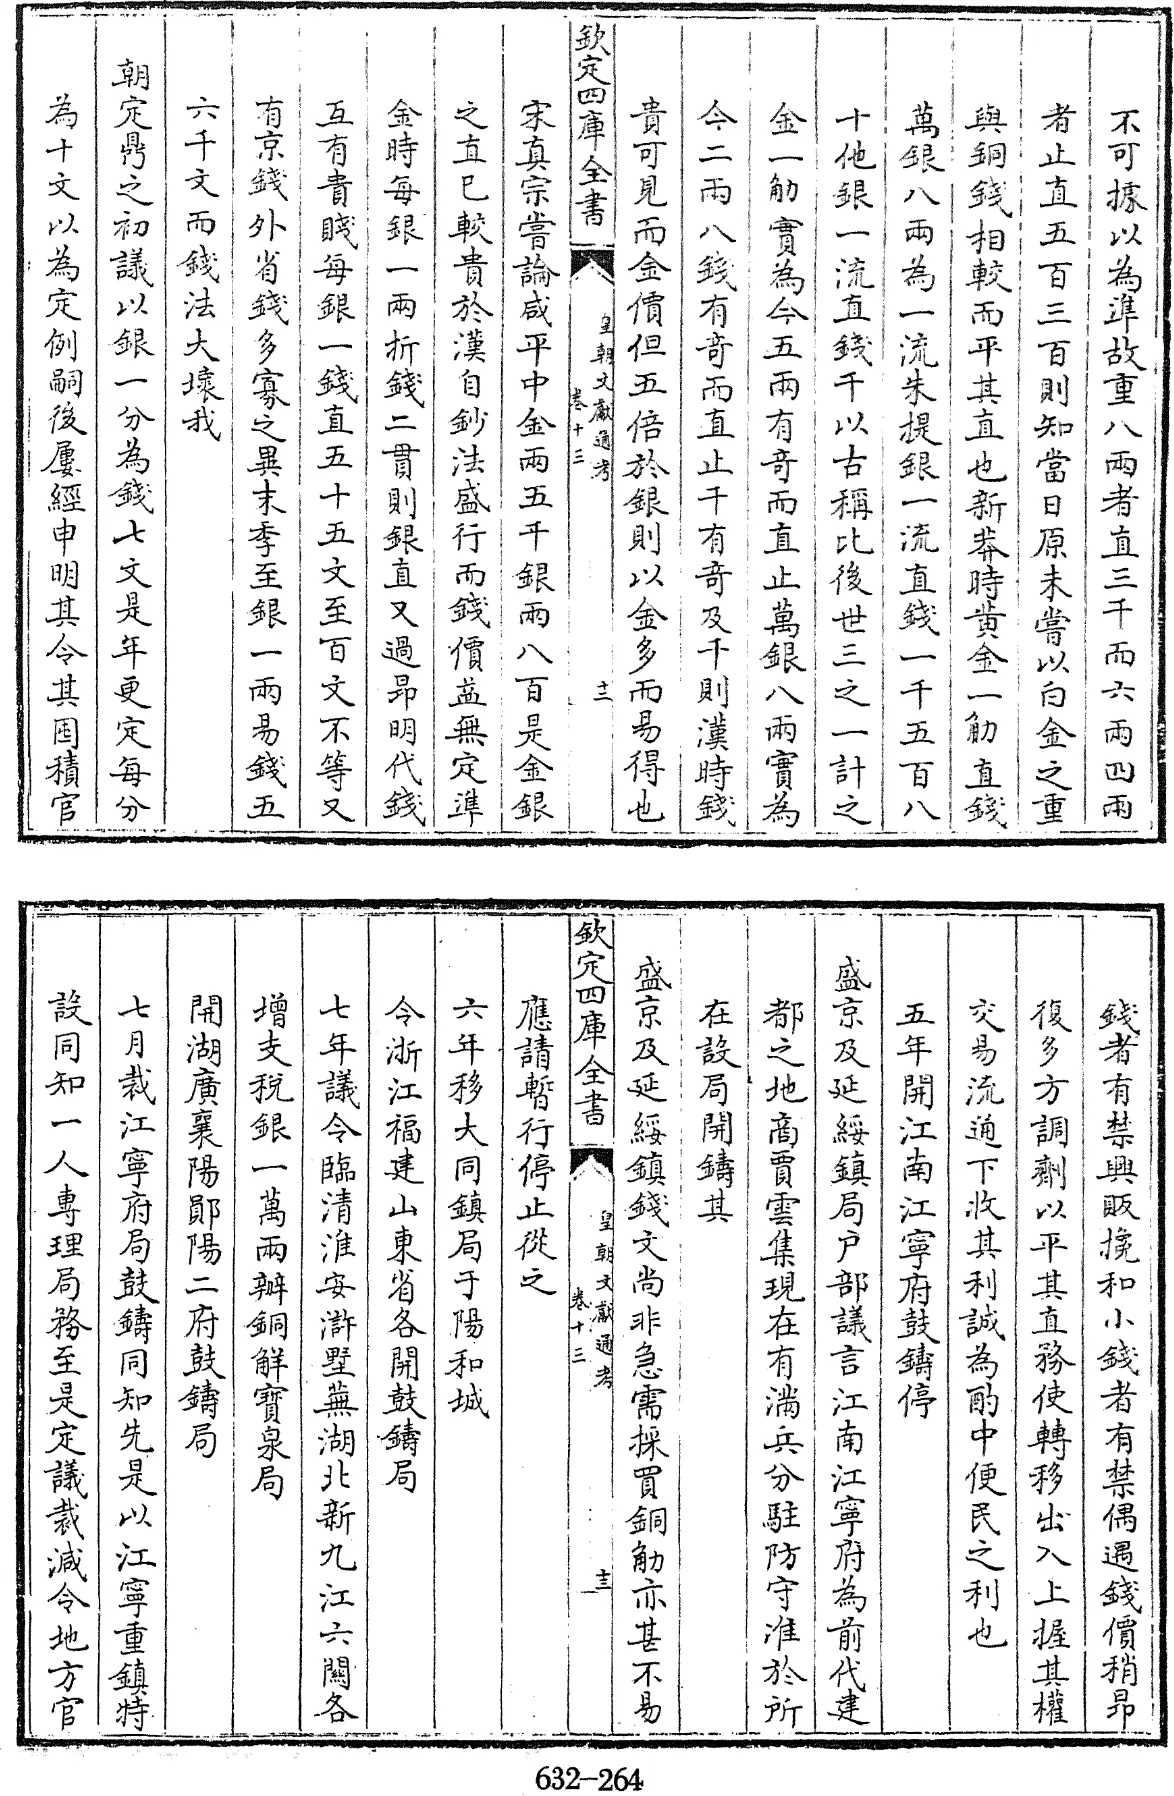 不可據以為準故重八兩者直三千而六兩四兩
者止直五百三百則知當日原未嘗以白金之重
與銅錢相較而平其直也新莽時黄金一觔直錢
萬銀八兩為一流朱提銀一流直錢一千五百八
十他銀一流直錢千以古稱比後世三之一計之
金一觔實為今五兩有奇而直止萬銀八兩實為
今二兩八錢有奇而直止千有奇及千則漢時錢
貴可見而金價但五倍於銀則以金多而易得也
欽定四庫全書
皇朝文獻通考
卷十三
十二
宋真宗嘗論咸平中金兩五千銀兩八百是金銀
之直已較貴於漢自鈔法盛行而錢價益無定準
金時每銀一兩折錢二貫則銀直又過昂明代錢
互有貴賤每銀一錢直五十五文至百文不等又
有京錢外省錢多寡之異末季至銀一兩易錢五
六千文而錢法大壞我
朝定鼎之初議以銀一分為錢七文是年更定每分
為十文以為定例嗣後屢經申明其令其囤積官
錢者有禁興販攙和小錢者有禁偶遇錢價稍昂
復多方調劑以平其直務使轉移出入上握其權
交易流通下收其利誠為酌中便民之利也
五年開江南江寧府鼓鑄停
盛京及延綏鎮局户部議言江南江寧府為前代建
都之地商賈雲集現在有滿兵分駐防守准於所
在設局開鑄其
盛京及延綏鎮錢文尚非急需採買銅觔亦甚不易
欽定四庫全書
皇朝文獻通考
卷十三
十三
應請暫行停止從之
六年移大同鎮局于陽和城
令浙江福建山東省各開鼓鑄局
七年議令臨清淮安滸墅蕪湖北新九江六關各
增支稅銀一萬兩辦銅解寶泉局
開湖廣襄陽鄖陽二府鼓鑄局
七月裁江寧府局鼓鑄同知先是以江寧重鎮特
設同知一人專理局務至是定議裁減令地方官
632-264